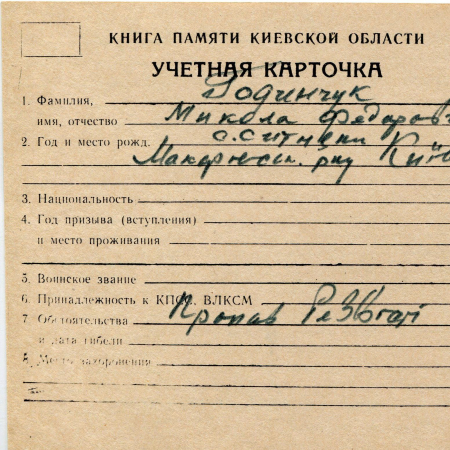 КНИГА ПАМЯТИ КИЕВСКОЙ ОБЛАСТИ
УЧЕТНАЯ КАРТОЧКА
1. Фамилия, Годинчук
имя, отчество Микола Федоров
2. Год и место рожд. с. Ситняки
Макарівськ. р-ну Київ
3. Национальность
4. Год призыва (вступления)
и место проживания
5. Воинское звание
6. Принадлежность к КПСС, ВЛКСМ
7. Обстоятельства Пропав
и дата гибели
8. Место захоронения